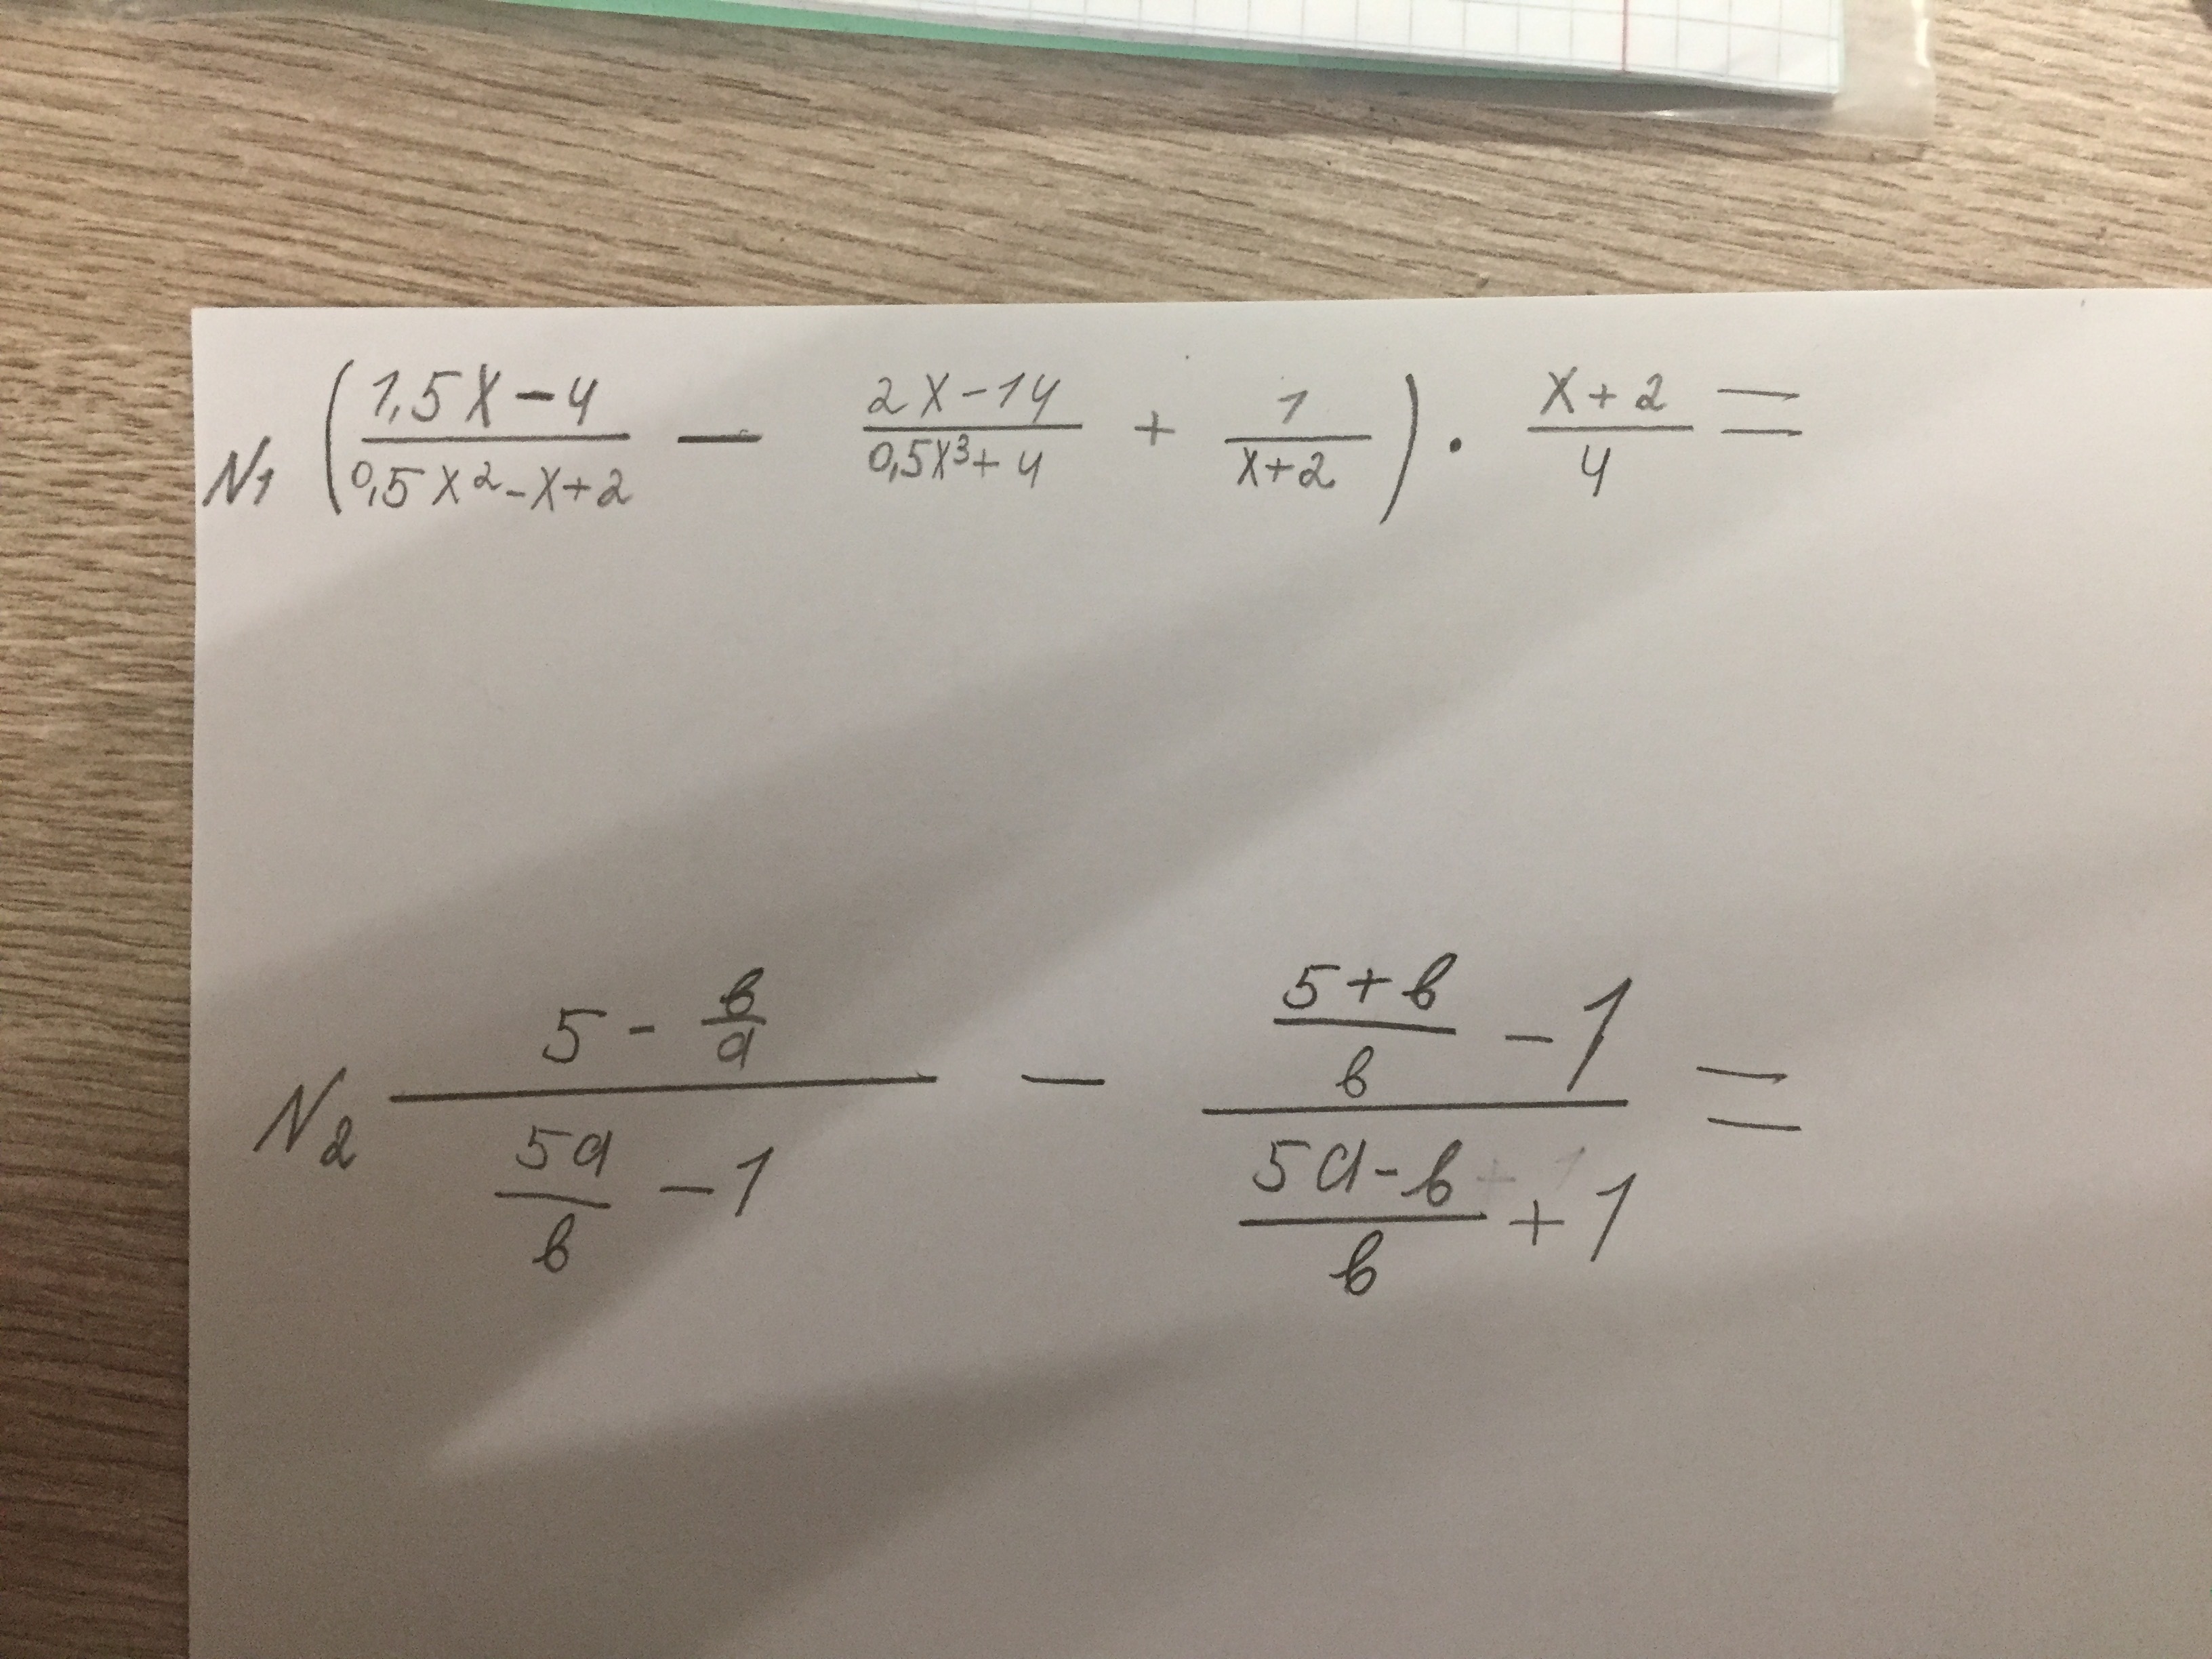 N1 (\frac{1,5x-4}{0,5x^2-x+2} - \frac{2x-14}{0,5x^3+4} + \frac{1}{x+2}) \cdot \frac{x+2}{4} =
N2 \frac{5-\frac{в}{а}}{\frac{5а}{в}-1} - \frac{\frac{5+в}{в}-1}{\frac{5а-в}{в}+1} =